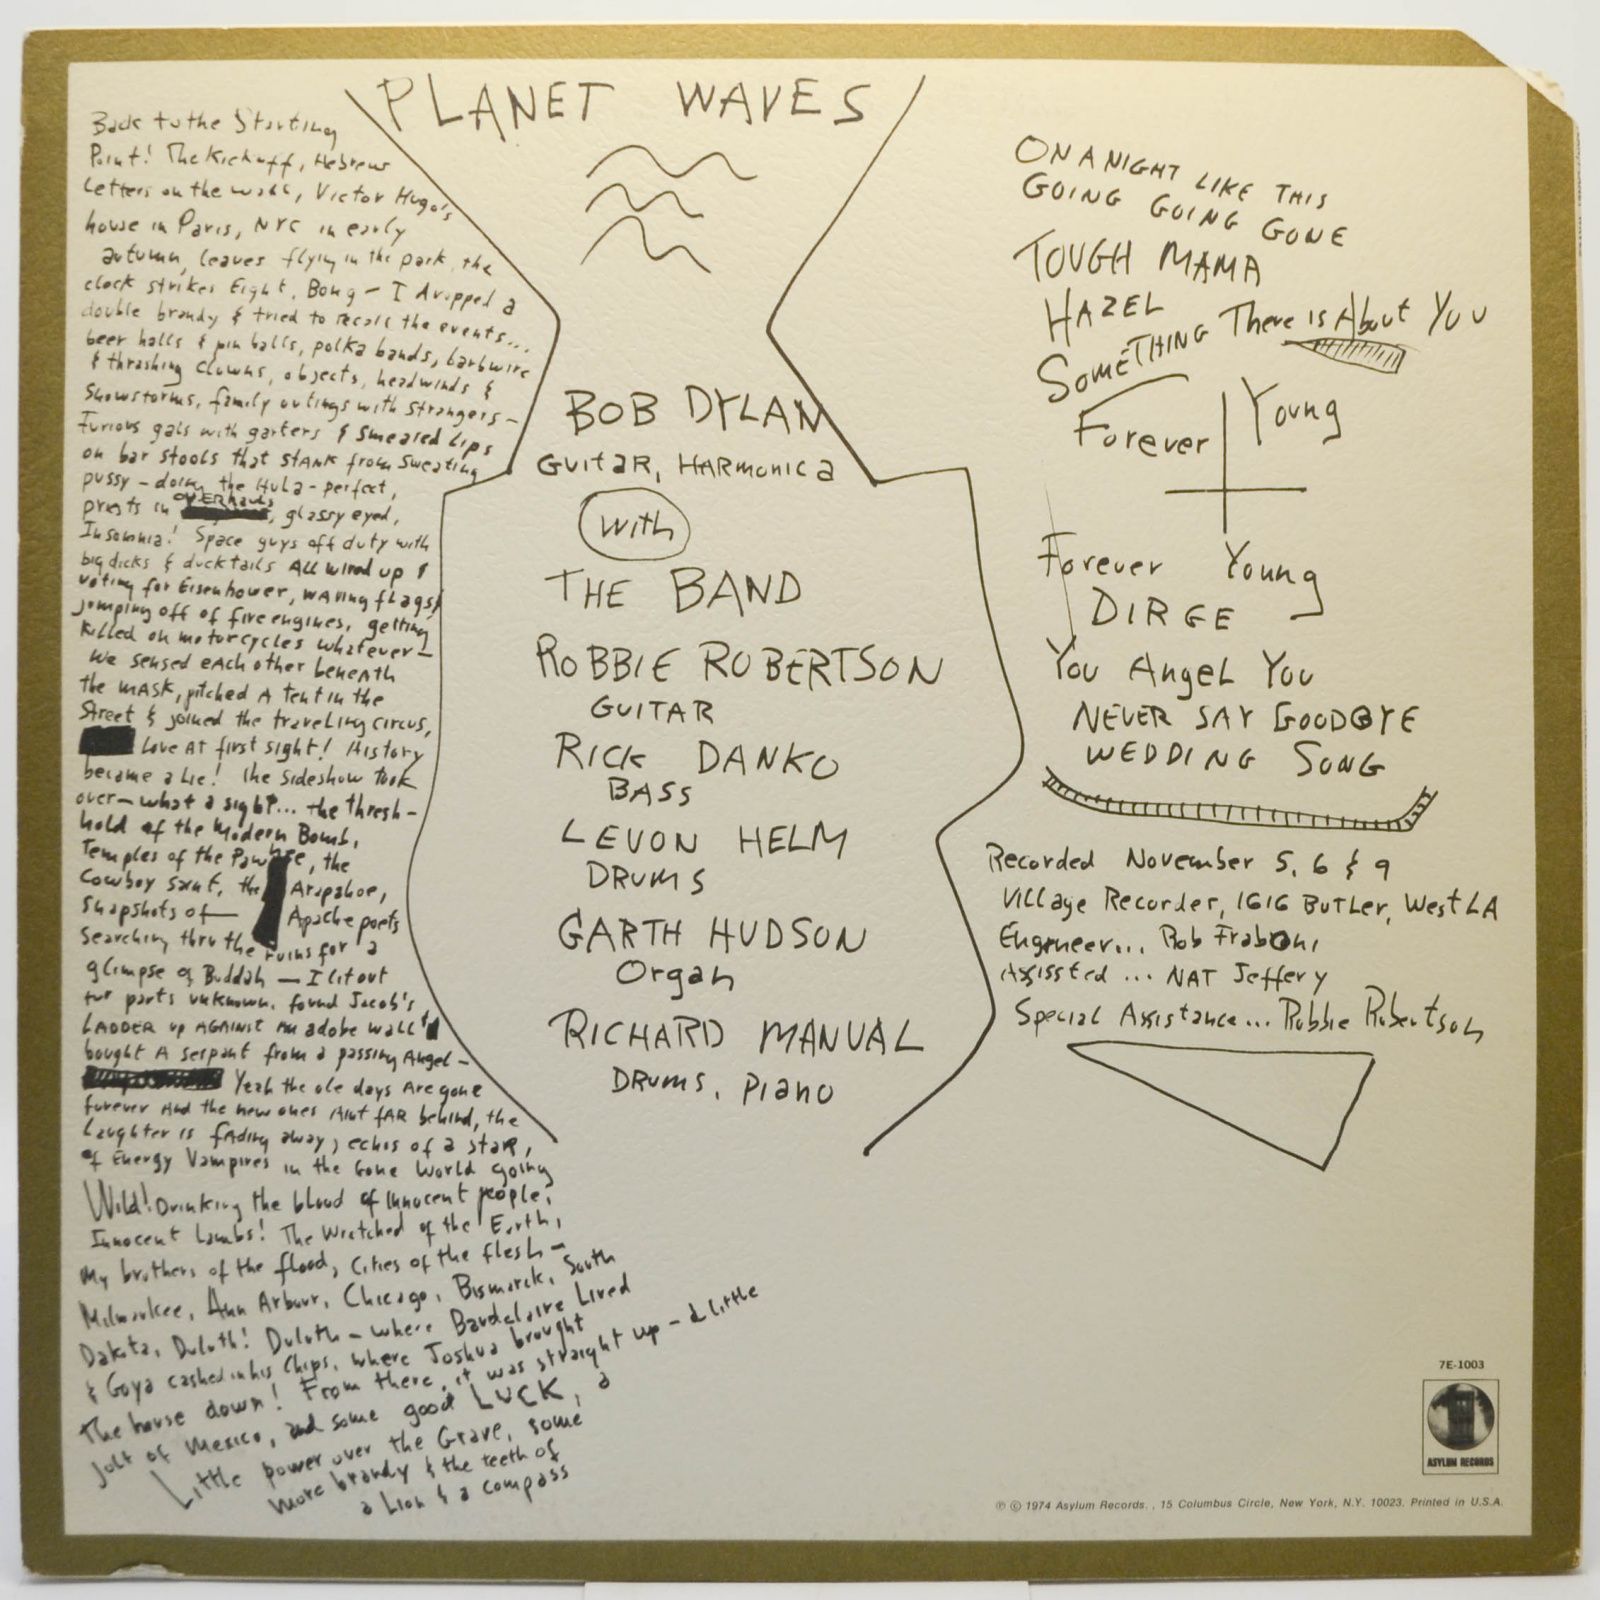 PLANET WAVES
Back to the Starting
Point! The Kickoff, Hebrew
Letters on the wall, Victor Hugo's
house in Paris, NYC in early
autumn, leaves flying in the park, the
clock strikes Eight, Bong - I dropped a
double brandy & tried to recall the events...
beer halls & pin balls, polka bands, barbwire
& thrashing clowns, objects, headwinds &
Snowstorms, family outings with strangers -
Furious gals with garters & smeared Lips
on bar stools that stank from sweating
pussy - doing the Hula - perfect,
priests in OVERhauls, glassy eyed,
Insomnia! Space guys off duty with
big dicks & ducktails All wired up &
voting for Eisenhower, waving flags &
jumping off of fire engines, getting
killed on motorcycles whatever -
We sensed each other beneath
the mask, pitched a tent in the
Street & joined the traveling circus,
Love at first sight! History
became a Lie! the sideshow took
over - what a sight... the thresh-
hold of the Modern Bomb,
Temples of the Pawnee, the
Cowboy saint, the Arapahoe,
snapshots of - Apache poets
searching thru the ruins for a
glimpse of Buddah - I lit out
for parts unknown, found Jacob's
LADDER up AGAINST an adobe wall &
bought A serpant from a passing Angel -
Yeah the ole days Are gone
forever And the new ones Aint fAR behind, the
Laughter is fAding away, echos of a star,
of Energy Vampires in the Gone World going
Wild! Drinking the blood of innocent people,
Innocent Lambs! The Wretched of the Earth,
My brothers of the flood, Cities of the flesh -
Milwaukee, Ann Arbour, Chicago, Bismarck, South
Dakota, Duluth! Duluth - where Baudelaire Lived
& Goya cashed in his Chips, where Joshua brought
the house down! From there, it was straight up - a little
jolt of Mexico, and some good LUCK, a
Little power over the Grave, some
more brandy & the teeth of
a Lion & a compass
BOB DYLAN
Guitar, HARmonica
with
THE BAND
ROBBIE ROBERTSON
GUITAR
RICK DANKO
BASS
LEVON HELM
DRUMS
GARTH HUDSON
Organ
RICHARD MANUAL
DRUMS, Piano
ON A NIGHT LIKE THIS
GOING GOING GONE
TOUGH MAMA
HAZEL
SOMETHING There is About You
Forever Young
Forever Young
DIRGE
You Angel You
NEVER SAY GOODBYE
WEDDING SONG
Recorded November 5, 6 & 9
Village Recorder, 1616 BUTLer, West LA
Engineer... Rob Fraboni
Assissted ... NAT Jeffery
Special Assistance... Robbie Robertson
7E-1003
ASYLUM RECORDS
℗ © 1974 Asylum Records. , 15 Columbus Circle, New York, N.Y. 10023. Printed in U.S.A.